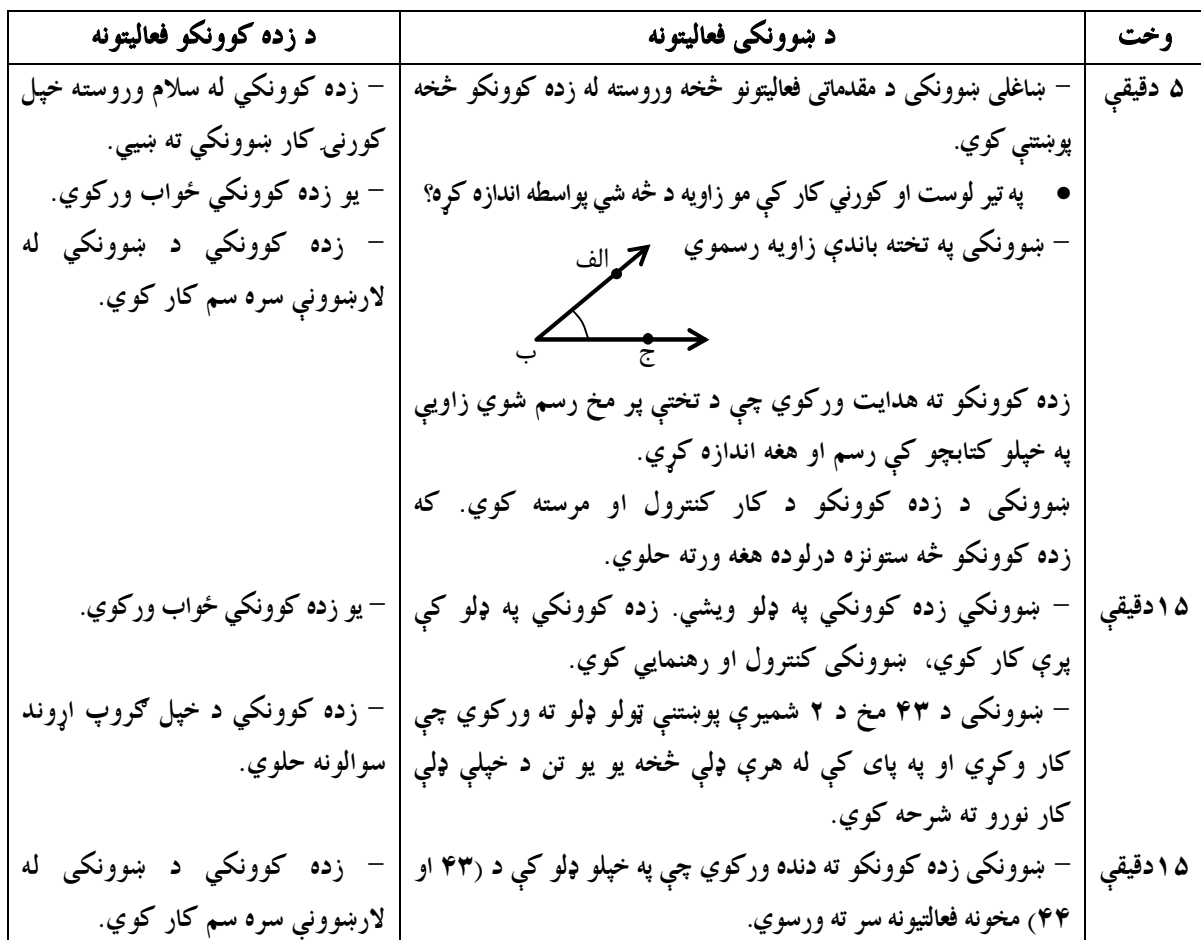 وخت
د ښوونکی فعالیتونه
د زده کوونکو فعالیتونه
۵ دقیقې
– ښاغلی ښوونکی د مقدماتی فعالیتونو څخه وروسته له زده کوونکو څخه
پوښتنې کوي.
● په تیر لوست او کورني کار کې مو زاویه د څه شي پواسطه اندازه کړه؟
– ښوونکی په تخته باندې زاویه رسموي
الف
ب
ج
زده کوونکو ته هدایت ورکوي چې د تختې پر مخ رسم شوي زاویې
په خپلو کتابچو کې رسم او هغه اندازه کړي.
ښوونکی د زده کوونکو د کار کنترول او مرسته کوي. که
زده کوونکو څه ستونزه درلوده هغه ورته حلوي.
– زده کوونکي له سلام وروسته خپل
کورنۍ کار ښوونکي ته ښیي.
– یو زده کوونکي ځواب ورکوي.
– زده کوونکي د ښوونکي له
لارښوونې سره سم کار کوي.
۱۵دقیقې
– ښوونکي زده کوونکي په ډلو ویشي. زده کوونکي په ډلو کې
پرې کار کوي، ښوونکی کنترول او رهنمایي کوي.
– ښوونکی د ۴۳ مخ د ۲ شمیرې پوښتنې ټولو ډلو ته ورکوي چې
کار وکړي او په پای کې له هرې ډلې څخه یو یو تن د خپلې ډلې
کار نورو ته شرحه کوي.
– یو زده کوونکي ځواب ورکوي.
– زده کوونکي د خپل ګروپ اړوند
سوالونه حلوي.
۱۵دقیقې
– ښوونکی زده کوونکو ته دنده ورکوي چې په خپلو ډلو کې د (۴۳ او
۴۴) مخونه فعالتیونه سر ته ورسوي.
– زده کوونکي د ښوونکی له
لارښوونې سره سم کار کوي.